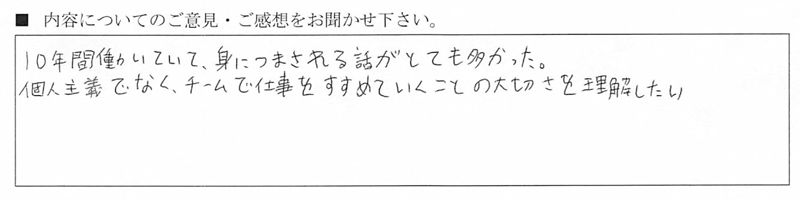 ■ 内容についてのご意見・ご感想をお聞かせ下さい。
10年間働いていて、身につまされる話がとても多かった。
個人主義でなく、チームで仕事をすすめていくことの大切さを理解したい